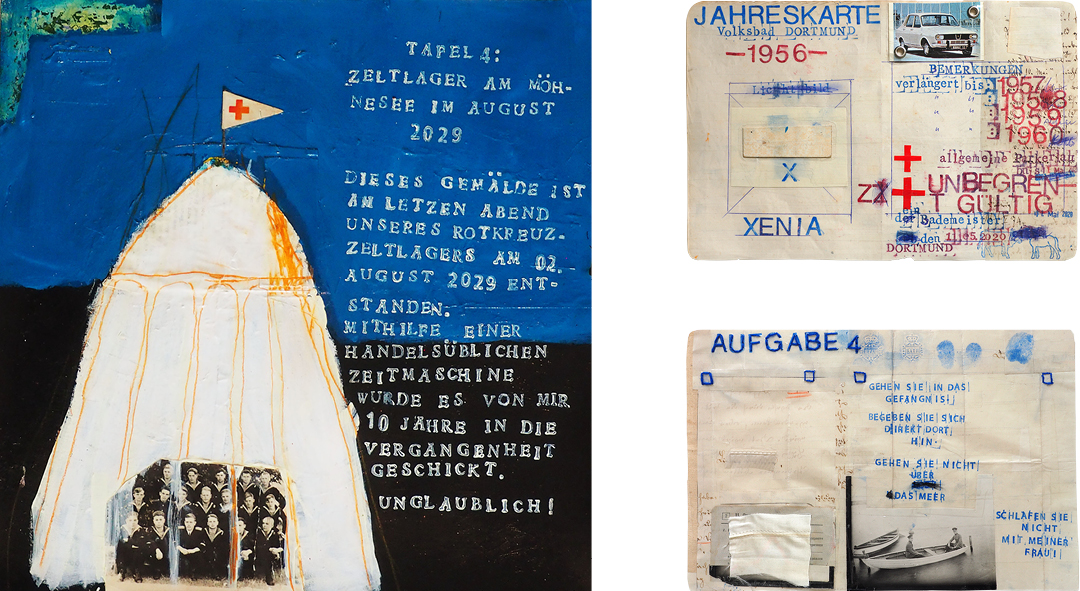 TAFEL 4:
ZELTLAGER AM MÖH-
NESEE IM AUGUST
2029
DIESES GEMÄLDE IST
AM LETZEN ABEND
UNSERES ROTKREUZ-
ZELTLAGERS AM 02.
AUGUST 2029 ENT-
STANDEN.
MITHILFE EINER
HANDELSÜBLICHEN
ZEITMASCHINE
WURDE ES VON MIR
10 JÄHRE IN DIE
VERGANGENHEIT
GESCHICKT.
UNGLAUBLICH!
JAHRESKARTE
Volksbad DORTMUND
—1956—
Lichtbild
X
XENIA
BEMERKUNGEN
verlängert bis:
1957
1958
1959
1960
allgemeine
UNBEGREN
T GÜLTIG
der Bademeister
den 11.05.2020
DORTMUND
AUFGABE 4
GEHEN SIE IN DAS
GEFÄNGNIS!
BEGEBEN SIE SICH
DIREKT DORT
HIN.
GEHEN SIE NICHT
ÜBER
DAS MEER
SCHLAFEN SIE
NICHT
MIT MEINER
FRAU!